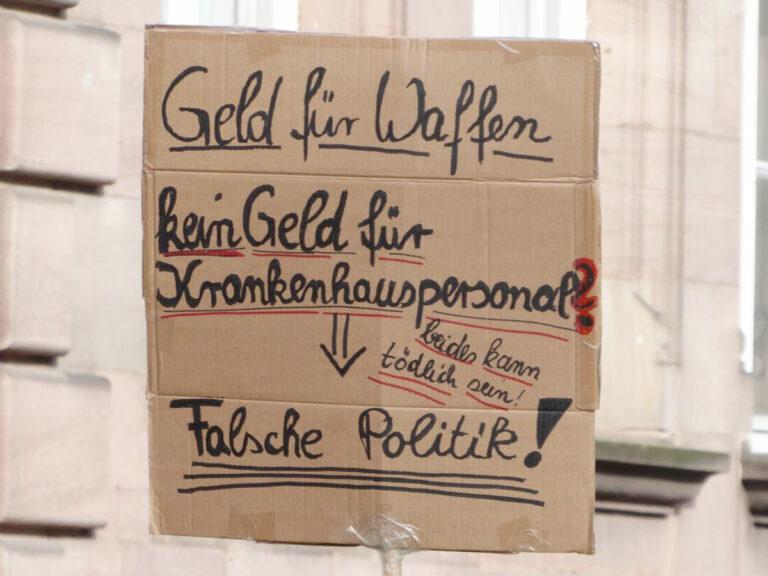 Geld für Waffen
kein Geld für
Krankenhauspersonal?
beides kann
tödlich sein!
Falsche Politik!